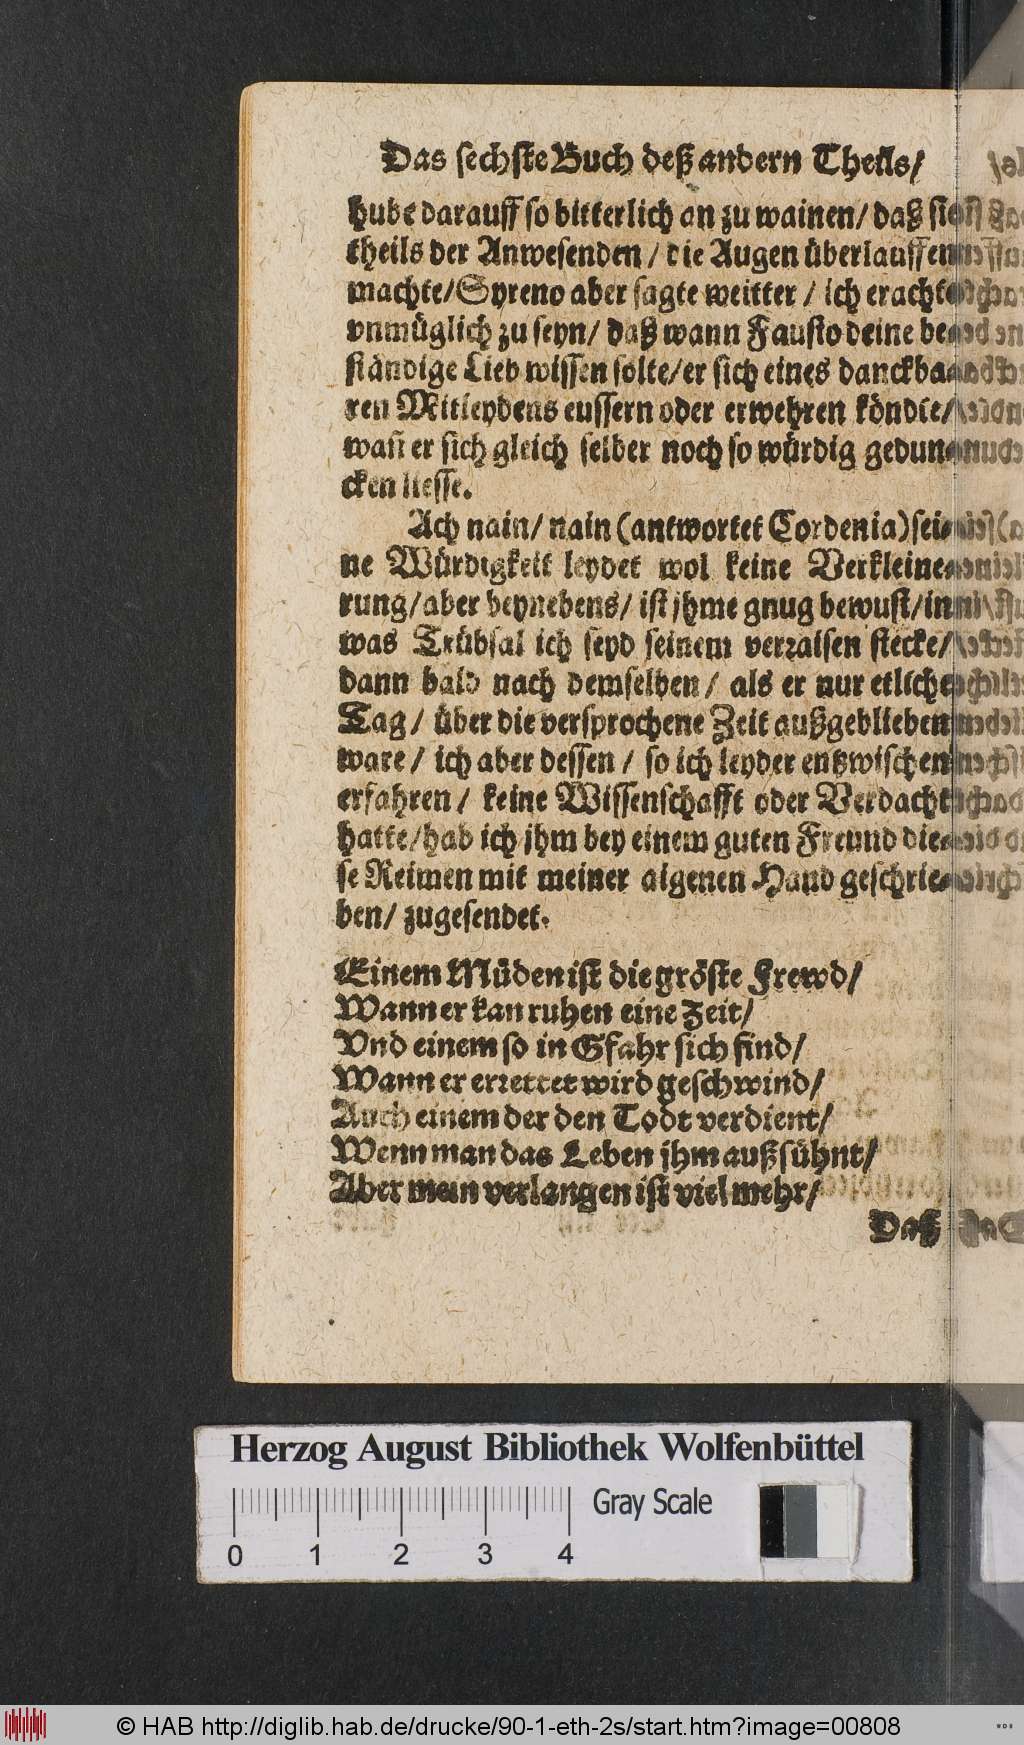 Das sechste Buch deß andern Theils/
hube darauff so bitterlich an zu wainen/ daß sie
theils der Anwesenden / die Augen überlauffen
machte/Syreno aber sagte weitter / ich erachte
vnmüglich zu seyn/ daß wann Fausto deine be-
ständige Lieb wissen solte/er sich eines danckba-
ren Mitleydens eussern oder erwehren köndte/
wañ er sich gleich selber noch so würdig gedun-
cken liesse.
Ach nain/ nain (antwortet Cordenia) sei-
ne Würdigkeit leydet wol keine Verkleine-
rung/aber beynebens/ ist jhme gnug bewust/in
was Trübsal ich seyd seinem verraisen stecke/
dann bald nach demselben/ als er nur etliche
Tag/ über die versprochene Zeit außgeblieben
ware/ ich aber dessen / so ich leyder entzwischen
erfahren/ keine Wissenschafft oder Verdacht
hatte/hab ich jhm bey einem guten Freund die-
se Reimen mit meiner aigenen Hand geschrie-
ben/ zugesendet.
Einem Müden ist die gröste Frewd/
Wann er kan ruhen eine Zeit/
Vnd einem so in Gfahr sich find/
Wann er errettet wird geschwind/
Auch einem der den Todt verdient/
Wenn man das Leben jhm außsühnt/
Aber mein verlangen ist viel mehr/
Daß
Herzog August Bibliothek Wolfenbüttel
Gray Scale
0 1 2 3 4
© HAB http://diglib.hab.de/drucke/90-1-eth-2s/start.htm?image=00808